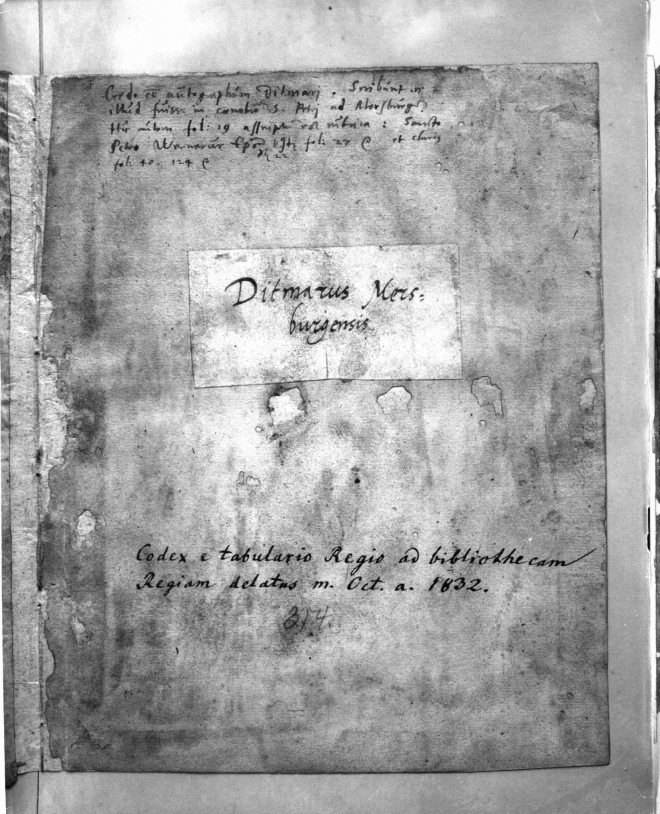 Credo eē autographum Ditmari. Scribunt
illud fuisse in S. Petri ad Mersburg
fol: 19 rubrica: Sancto
Petro fol: 27 et
fol. 40. 124
Ditmarus Mers-
burgensis
Codex e tabulario Regio ad bibliothecam
Regiam delatus m. Oct. a. 1832.
314.